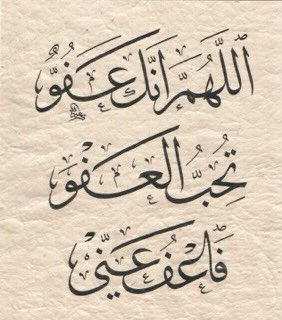 اللَّهُمَّ إِنَّكَ عَفُوٌّ
تُحِبُّ العَفْوَ
فَاعْفُ عَنِّي